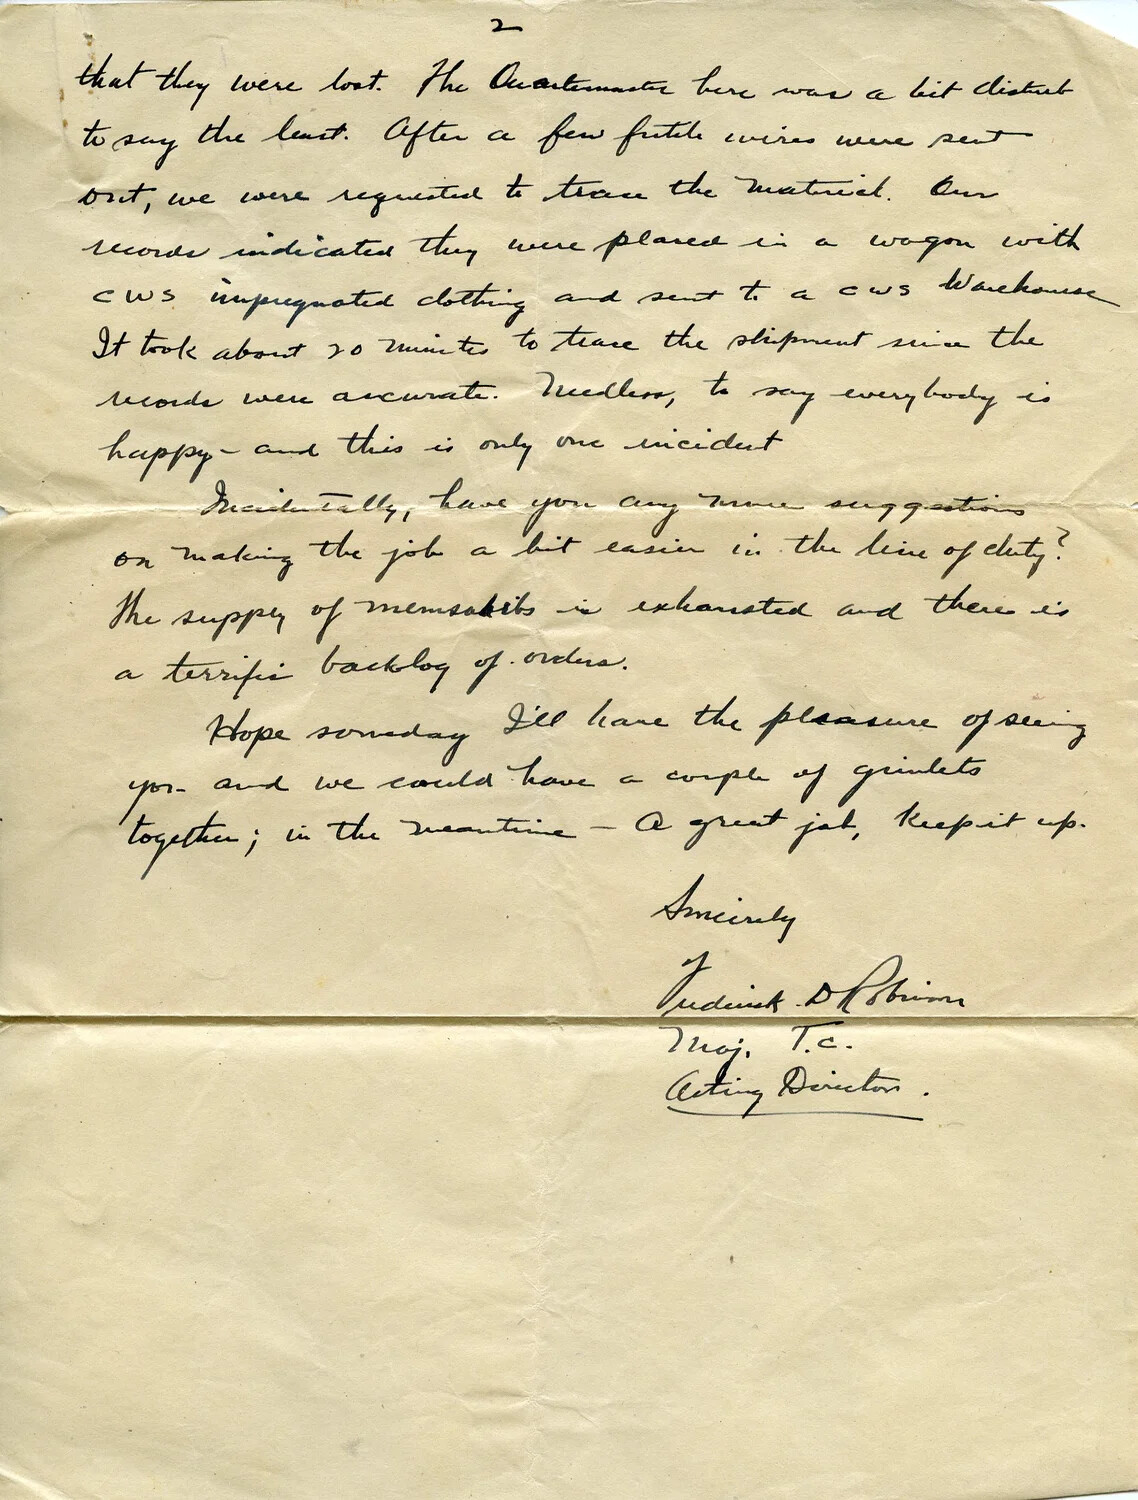 2
that they were lost. The Quartermaster here was a bit disturb
to say the least. After a few futile wires were sent
out, we were requested to trace the material. Our
records indicated they were placed in a wagon with
CWS impregnated clothing and sent to a CWS Warehouse
It took about 20 minutes to trace the shipment since the
records were accurate. Needless, to say everybody is
happy - and this is only one incident
Incidentally, have you any more suggestions
on making the job a bit easier in the line of duty?
The supply of memsahibs is exhausted and there is
a terrific backlog of orders.
Hope someday I'll have the pleasure of seeing
you - and we could have a couple of gimlets
together; in the meantime - A great job, keep it up.
Sincerely
Frederick D Robinson
Maj. T.C.
Acting Director.